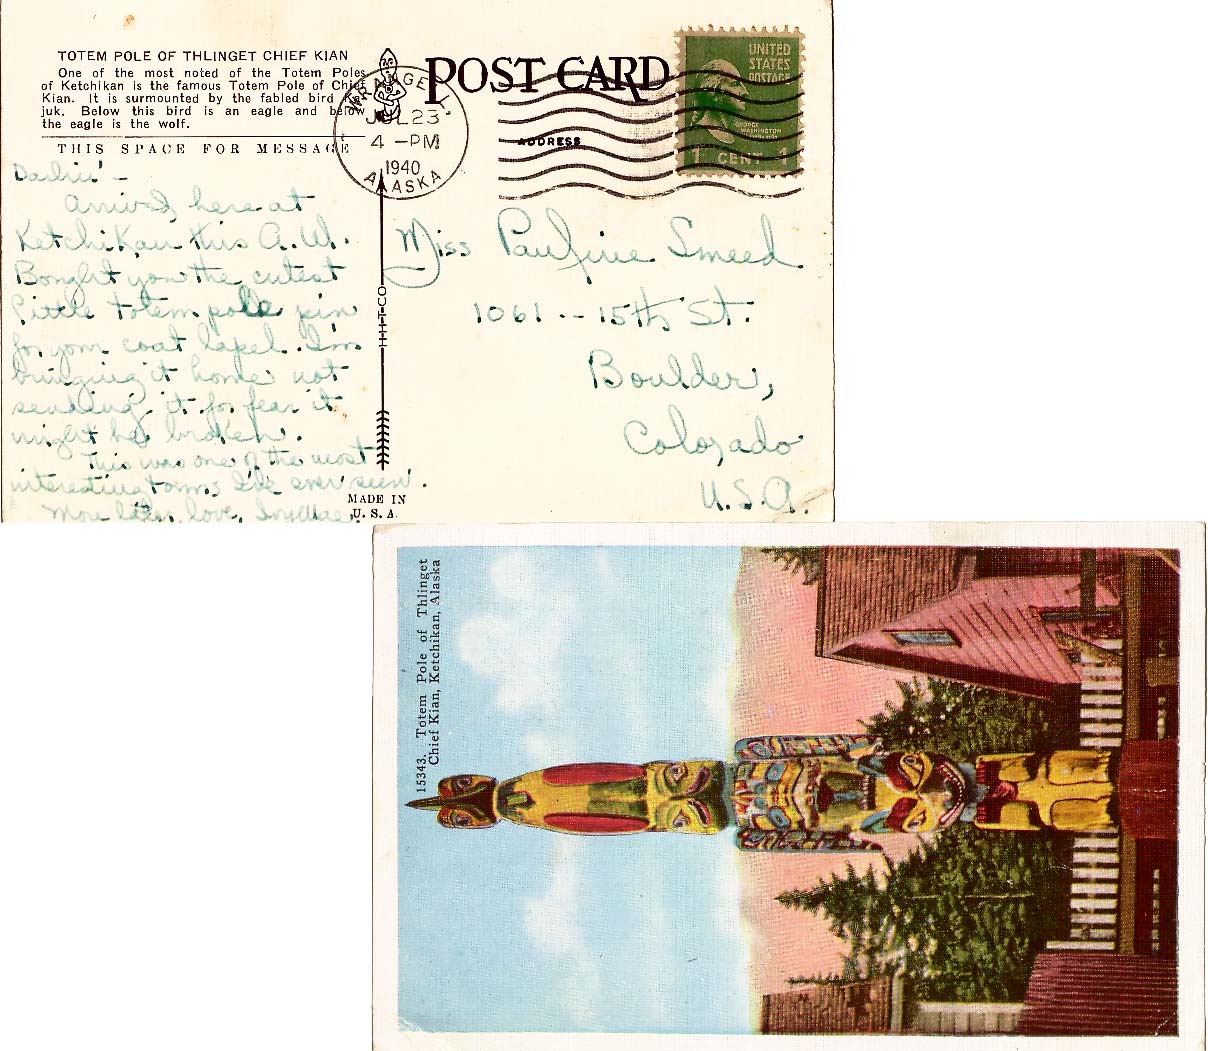 TOTEM POLE OF THLINGET CHIEF KIAN
One of the most noted of the Totem Poles
of Ketchikan is the famous Totem Pole of Chief
Kian. It is surmounted by the fabled bird
juk. Below this bird is an eagle and below
the eagle is the wolf.
THIS SPACE FOR MESSAGE
POST CARD
ADDRESS
WRANGELL,
JUL 23
4 -PM
1940
ALASKA
UNITED
STATES
POSTAGE
GEORGE
WASHINGTON
1 CENT 1
Arrived here at
Ketchikan this A.M.
Bought you the cutest
little totem pole pin
for your coat lapel. I'm
bringing it home not
sending it for fear it
might be broken.
This was one of the most
interesting towns I've ever seen.
More later, love,
Miss Pauline Smeed
1061 -- 15th St.
Boulder,
Colorado
U.S.A.
MADE IN
U. S. A.
15343. Totem Pole of Thlinget
Chief Kian, Ketchikan, Alaska